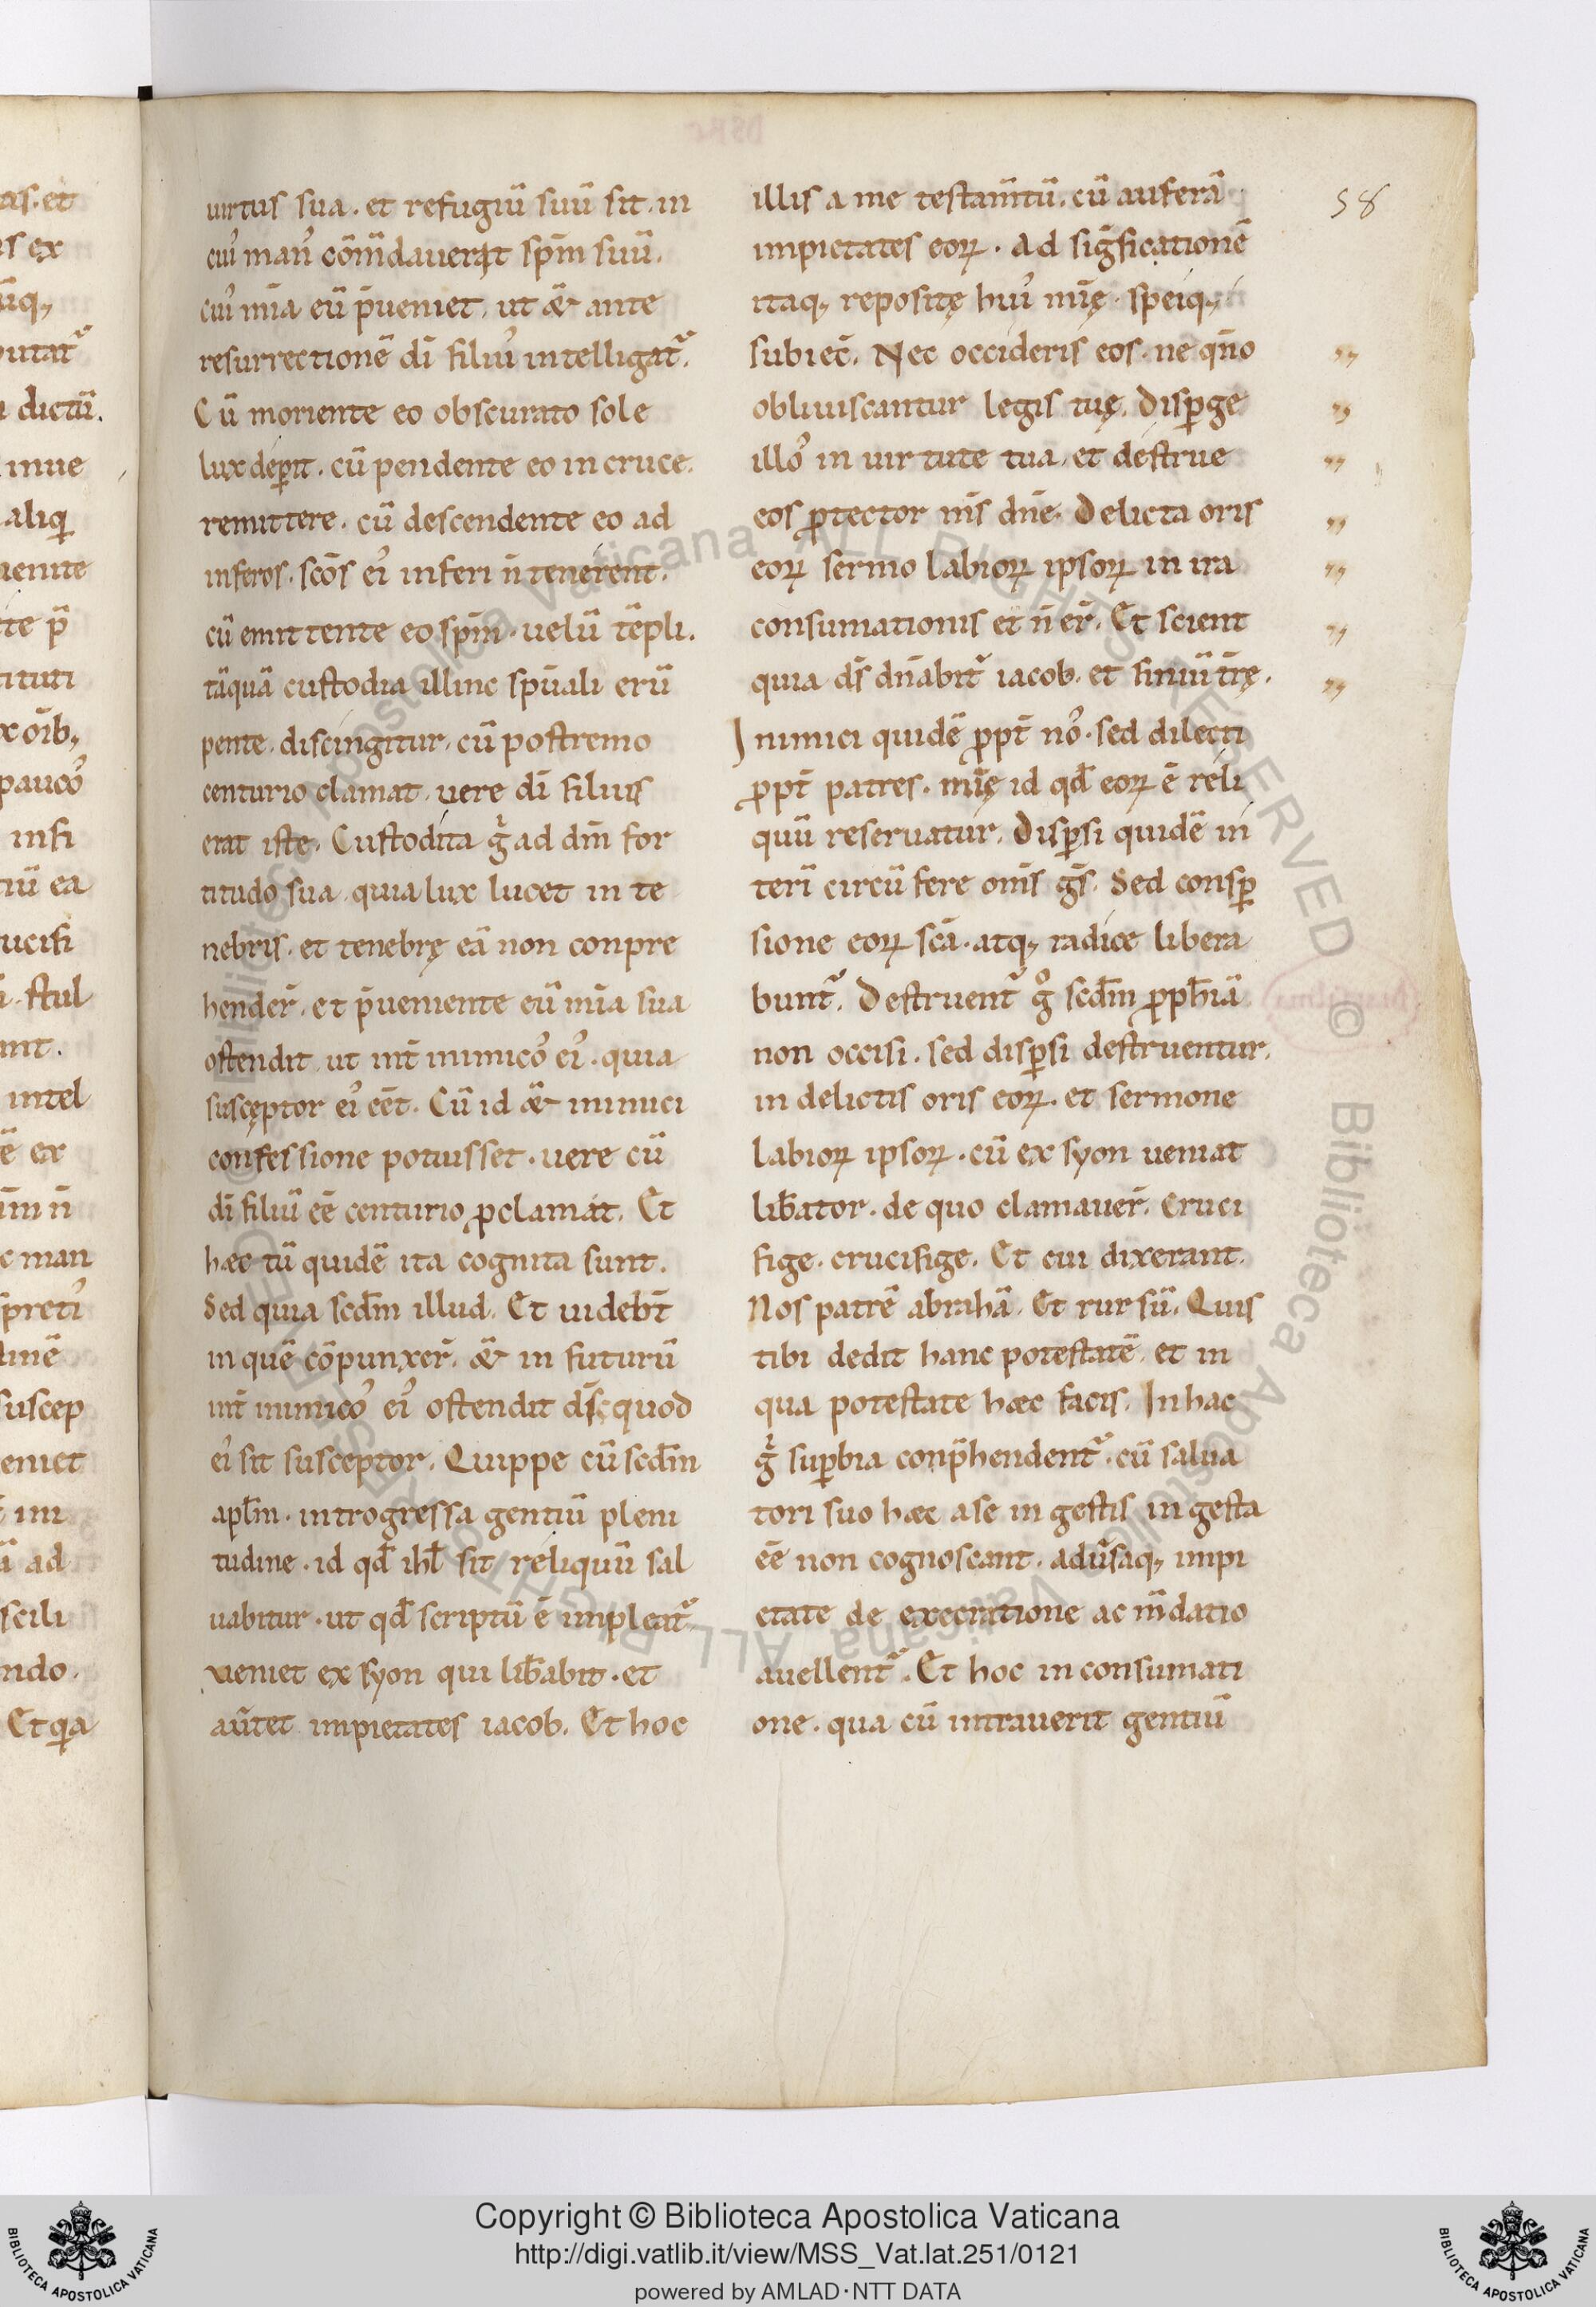 uirtus sua. et refugiū suū sit. in
cui᾽ man᾽ cōm̄dauerat sp̄m suū.
cui᾽ mīa eū p̄ueniet. ut & ante
resurrectionē dī filiu᾽ intelligat᷑.
Cū moriente eo obscurato sole
lux deꝑit. cū pendente eo in cruce.
remittere. cū descendente eo ad
inferos. scōs ei᾽ inferi n̄ tenerent.
cū emittente eo sp̄m. uelū tēpli.
tāquā custodia illinc spūali erū
pente. discingitur. cū postremo
centurio clamat. uere dī filius
erat iste. Custodita g̍ ad dm̄ for
titudo sua. quia lux lucet in te
nebris. et tenebrę eā non conpre
hender̄. et p̄ueniente eū mīa sua
ostendit. ut int̄ inimico᾽ ei᾽. quia
suscęptor ei᾽ eēt. Cū id & inimici
confessione potuisset. uere cū
dī filiū eē centurio ꝓclamat. Et
hæc tū quidē ita cognita sunt.
Sed quia scdm̄ illud. Et uidebt̄
in quē cōpunxer̄. & in futurū
int̄ inimico᾽ ei᾽ ostendit ds̄ quod
ei᾽ sit susceptor. Quippe cū scdm̄
aplm̄. introgressa gentiū pleni
tudine. id qd̄ ihl̄ sit reliquū sal
uabitur. ut qd̄ scriptū ē impleat᷑
ueniet ex syon qui lib̄abit. et
aūtet impietates iacob. Et hoc
illis a me testam̄tū. cū auferā
impietates eoꝝ. Ad siḡficationē
itaq; repositę hui᾽ mīę. speiq;
subiec̄. Nec occideris eos. ne qn̄o
obliuiscantur legis tuę. Disꝑge
illo᾽ in uirtute tua. et destrue
eos ꝓtector ms̄ dn̄e. Delicta oris
eoꝝ sermo labioꝝ ipsoꝝ in ira
consumationis et n̄ er̄. Et scient
quia ds̄ dn̄abit᷑ iacob. et finiū t̄rę.
Inimici quidē ꝓpt̄ no᾽. sed dilecti
ꝓpt̄ patres. mīę id qd̄ eoꝝ ē reli
quū reseruatur. Disꝑsi quidē in
teri circū fere oms̄ gs̄. Sed consꝑ
sione eoꝝ scā. atq; radice libera
bunt᷑. Destruent᷑ gͦ scdm̄ ꝓph̄iā
non occisi. sed disꝑsi destruentur.
in delictis oris eoꝝ. et sermone
labioꝝ ipsoꝝ. cū ex syon ueniat
lib̄ator. de quo clamauer̄. Cruci
fige. crucifige. Et cui dixerant.
Nos patrē abrahā. Et rursū. Quis
tibi dedit hanc potestatē. et in
qua potestate hæc facis. In hac
g̍ suꝑbia conp̄hendent᷑. cū salua
tori suo hæc a se in gestis ingesta
eē non cognoscant. adūsaq; impi
etate de execratione ac m̄datio
auellent᷑. Et hoc in consumati
one. qua cū intrauerit gentiū
58
as. et
is ex
putat᷑
dictū.
inue
aliq
uenite
te p̄
tituti
x oīb;
pauco᾽
insi
tiū ea
rucifi
. stul
ant.
intel
ē ex
c man
preti᾽
suscep
eniet
ini
ad
scili
ndo.
Et qꝛa
© Biblioteca Apostolica Vaticana ALL RIGHTS RESERVED
Copyright © Biblioteca Apostolica Vaticana
http://digi.vatlib.it/view/MSS_Vat.lat.251/0121
powered by AMLAD·NTT DATA
BIBLIOTECA APOSTOLICA VATICANA
BIBLIOTECA APOSTOLICA VATICANA